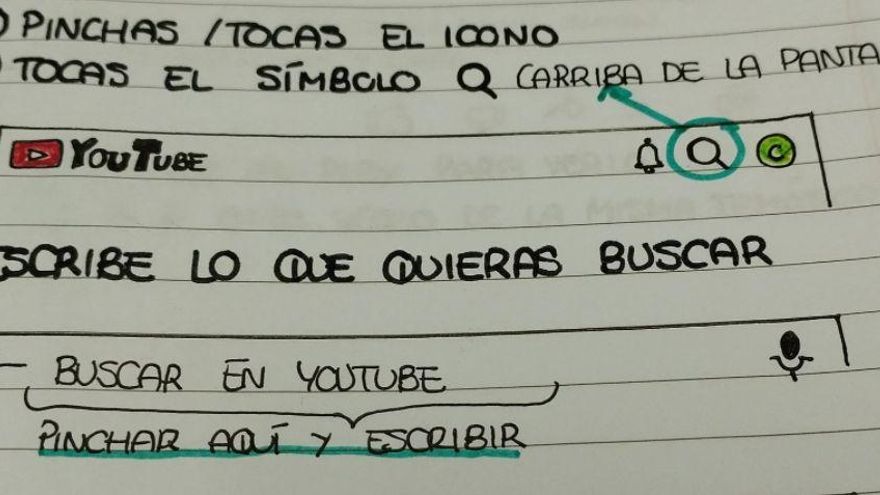 PINCHAS / TOCAS EL ICONO
TOCAS EL SÍMBOLO (ARRIBA DE LA PANTA
YOUTUBE C
SCRIBE LO QUE QUIERAS BUSCAR
BUSCAR EN YOUTUBE
PINCHAR AQUÍ Y ESCRIBIR